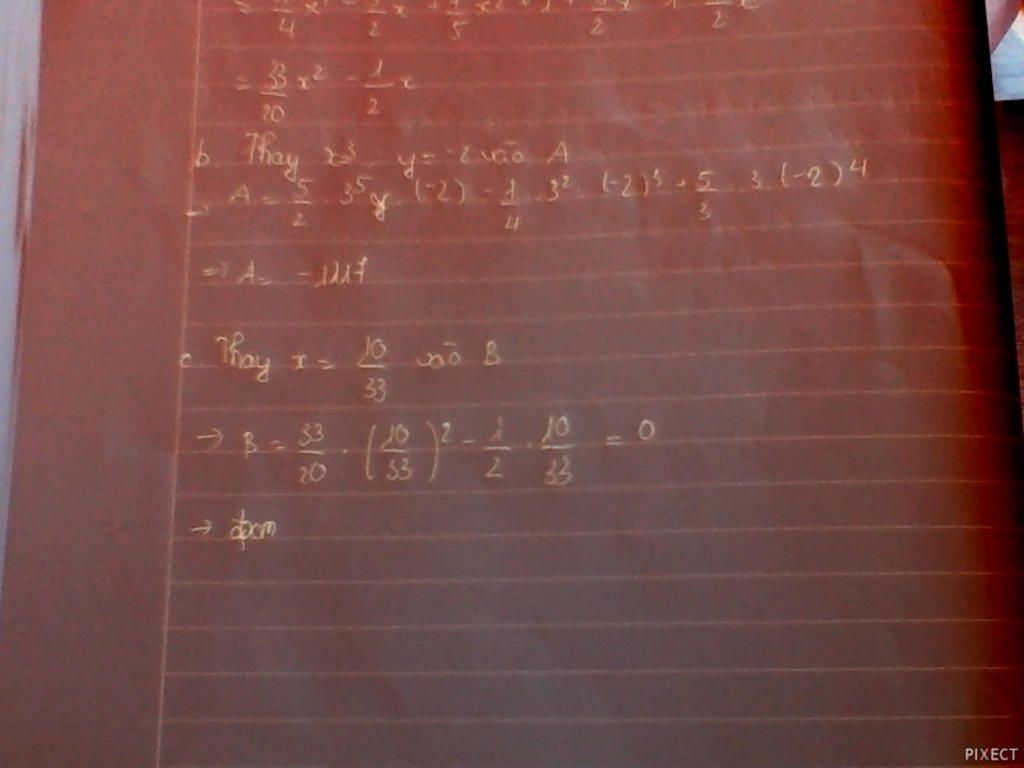 = 33/20 x² - 1/2 x
b Thay x=3 y=-2 vào A
→ A = 5/2 . 3⁵ . (-2) - 1/4 . 3² . (-2)³ + 5/3 . 3 . (-2)⁴
=> A= -1117
c Thay x = 10/33 vào B
→ B = 33/20 . (10/33)² - 1/2 . 10/33 = 0
→ đpcm
PIXECT